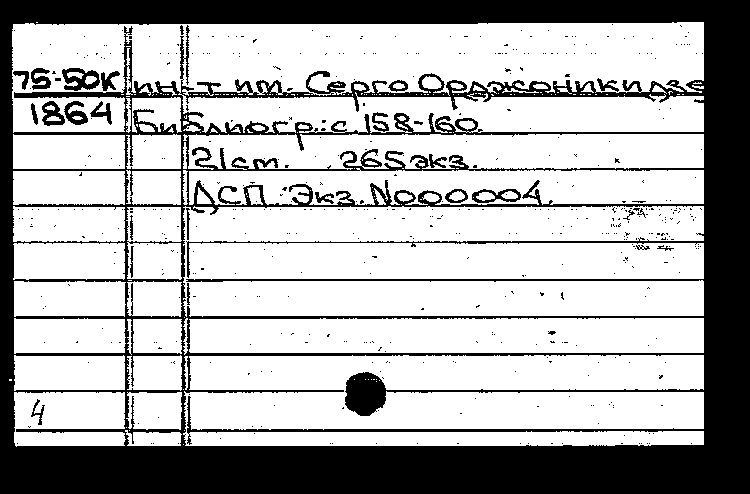 75-50К ин-т им. Серго Орджоникидзе
1864 Библиогр.: с. 158-160.
21 см. 265 экз.
ДСП. Экз. N000004.
4